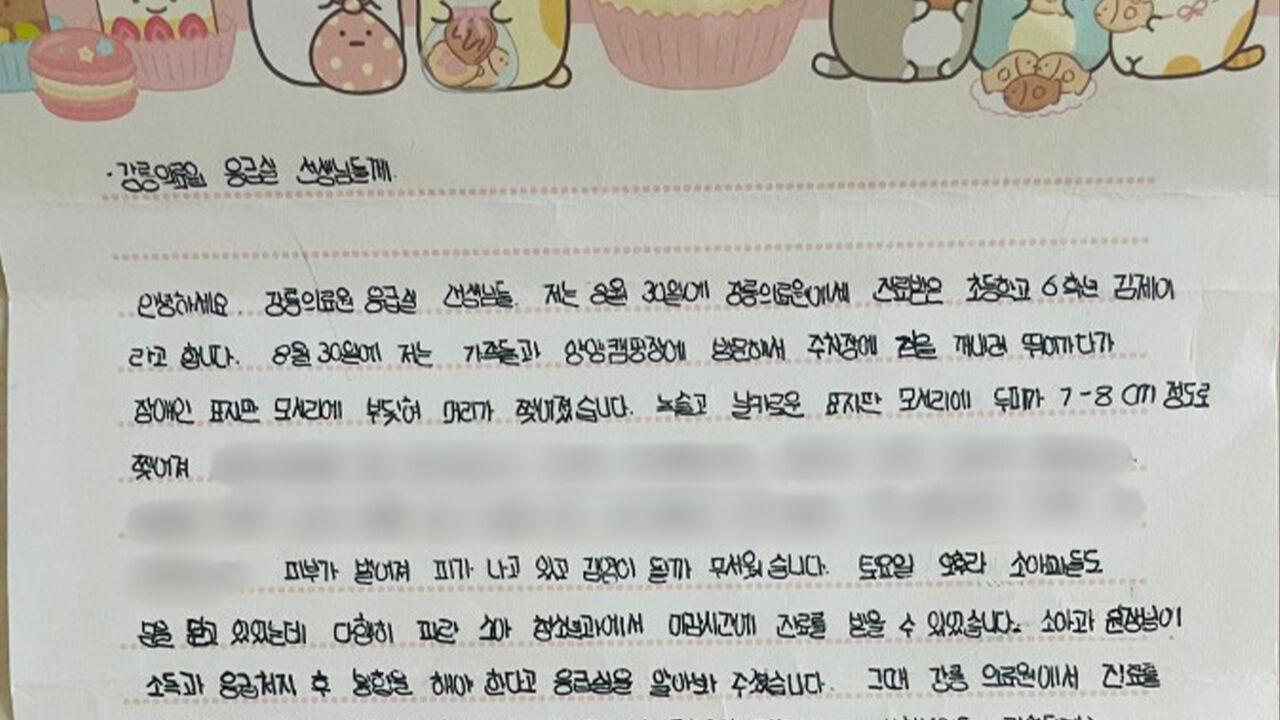 ·강릉의료원 응급실 선생님들께.
안녕하세요. 강릉의료원 응급실 선생님들. 저는 8월 30일에 강릉의료원에서 진료받은 초등학교 6학년 김제이
라고 합니다. 8월 30일에 저는 가족들과 양양캠핑장에 방문해서 주차장에 짐을 꺼내러 뛰어가다가
장애인 표지판 모서리에 부딪혀 머리가 찢어졌습니다. 녹슬고 날카로운 표지판 모서리에 두피가 7-8cm 정도로
찢어져
피부가 벌어져 피가 나고 있고 감염이 될까 무서웠습니다. 토요일 오후라 소아과들도
문을 닫고 있었는데 다행히 파란 소아 청소년과에서 마감시간에 진료를 받을 수 있었습니다. 소아과 원장님이
소독과 응급처지 후 봉합을 해야 한다고 응급실을 알아봐 주셨습니다. 그때 강릉 의료원에서 진료를